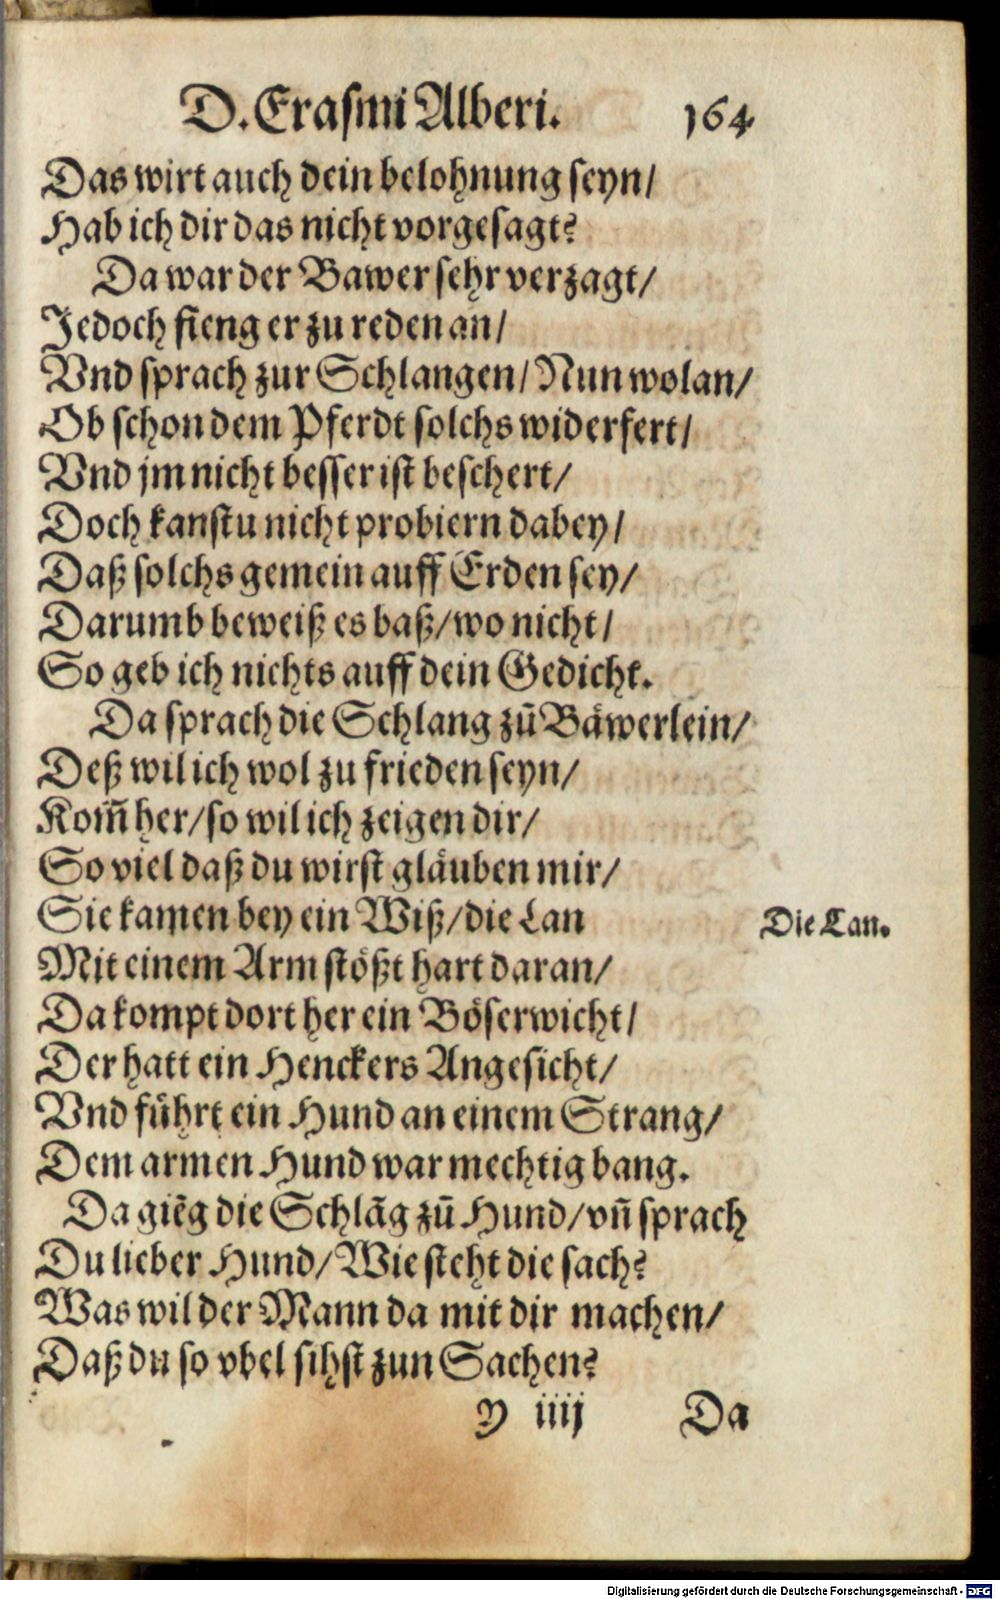 D. Erasmi Alberi. 164
Das wirt auch dein belohnung seyn/
Hab ich dir das nicht vorgesagt?
Da war der Bawer sehr verzagt/
Jedoch fieng er zu reden an/
Vnd sprach zur Schlangen/ Nun wolan/
Ob schon dem Pferdt solchs widerfert/
Vnd jm nicht besser ist beschert/
Doch kanstu nicht probiern dabey/
Daß solchs gemein auff Erden sey/
Darumb beweiß es baß/ wo nicht/
So geb ich nichts auff dein Gedicht.
Da sprach die Schlang zū Bäwerlein/
Deß wil ich wol zu frieden seyn/
Kom̃ her/ so wil ich zeigen dir/
So viel daß du wirst gläuben mir/
Sie kamen bey ein Wiß/ die Lan
Die Lan.
Mit einem Arm stößt hart daran/
Da kompt dort her ein Böserwicht/
Der hatt ein Henckers Angesicht/
Vnd führt ein Hund an einem Strang/
Dem armen Hund war mechtig bang.
Da giēg die Schlāg zū Hund/ vñ sprach
Du lieber Hund/ Wie steht die sach?
Was wil der Mann da mit dir machen/
Daß du so vbel sihst zun Sachen?
y iiij Da
Digitalisierung gefördert durch die Deutsche Forschungsgemeinschaft - DFG